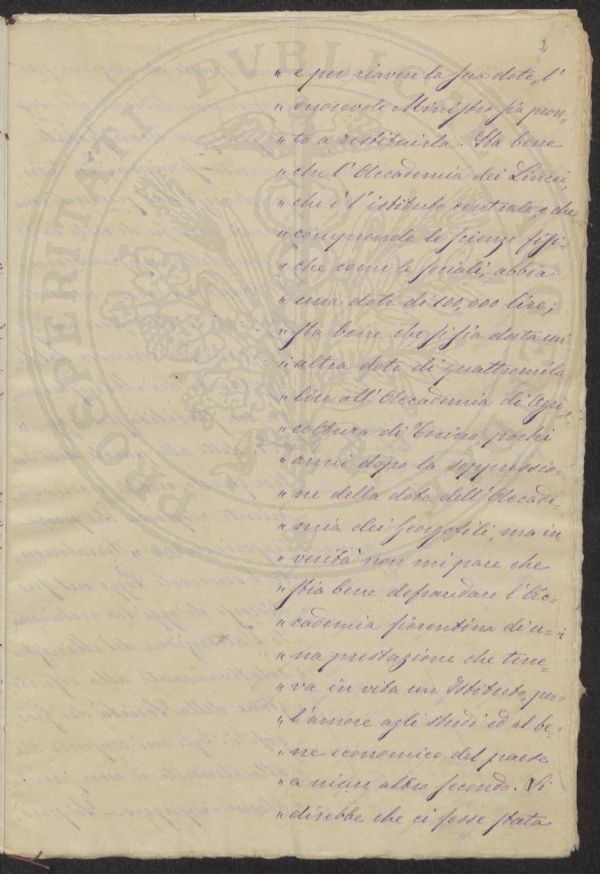 2
PROSPERITATI PVBLICAE
" e per riavere la sua dote, l'
" onorevole Ministro sia pron-
" to a restituirla. Sta bene
" che l'Accademia dei Lincei,
" che è l'istituto centrale e che
" comprende le scienze fisi-
" che come le sociali, abbia
" una dote di 100,000 lire;
" sta bene che si sia data un'
" altra dote di quattromila
" lire all'Accademia di Agri-
" coltura di Torino, pochi
" anni dopo la soppressio-
" ne della dote dell'Accade-
" mia dei Georgofili, ma in
" verità non mi pare che
" stia bene defraudare l'Ac-
" cademia fiorentina di u-
" na prestazione che tene-
" va in vita un Istituto, per
" l'amore agli studi ed al be-
" ne economico del paese
" a niun altro secondo. Si
" direbbe che ci fosse stata